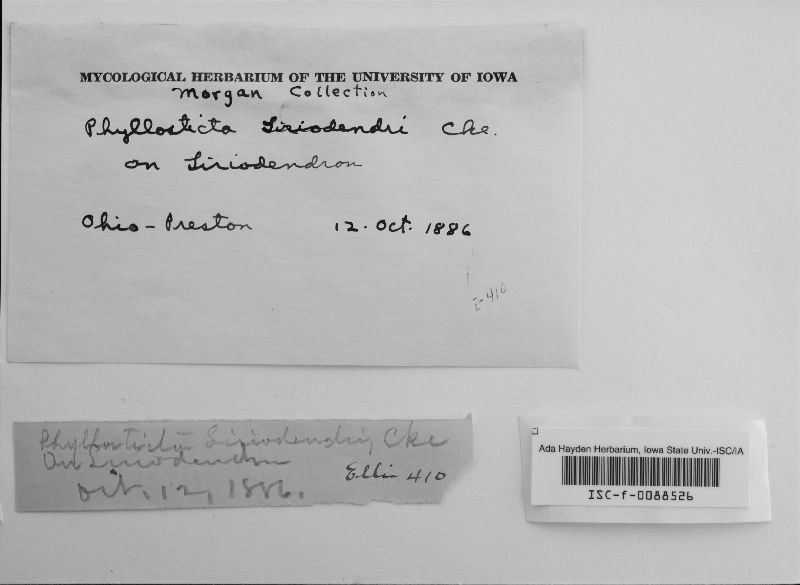 MYCOLOGICAL HERBARIUM OF THE UNIVERSITY OF IOWA
Morgan Collection
Phyllosticta Liriodendri Cke.
on Liriodendron
Ohio - Preston 12. Oct. 1886
I-410
Phyllosticta Liriodendri, Cke
On Liriodendron
Oct. 12, 1886.
Ellis 410
Ada Hayden Herbarium, Iowa State Univ.-ISC/IA
ISC-f-0088526